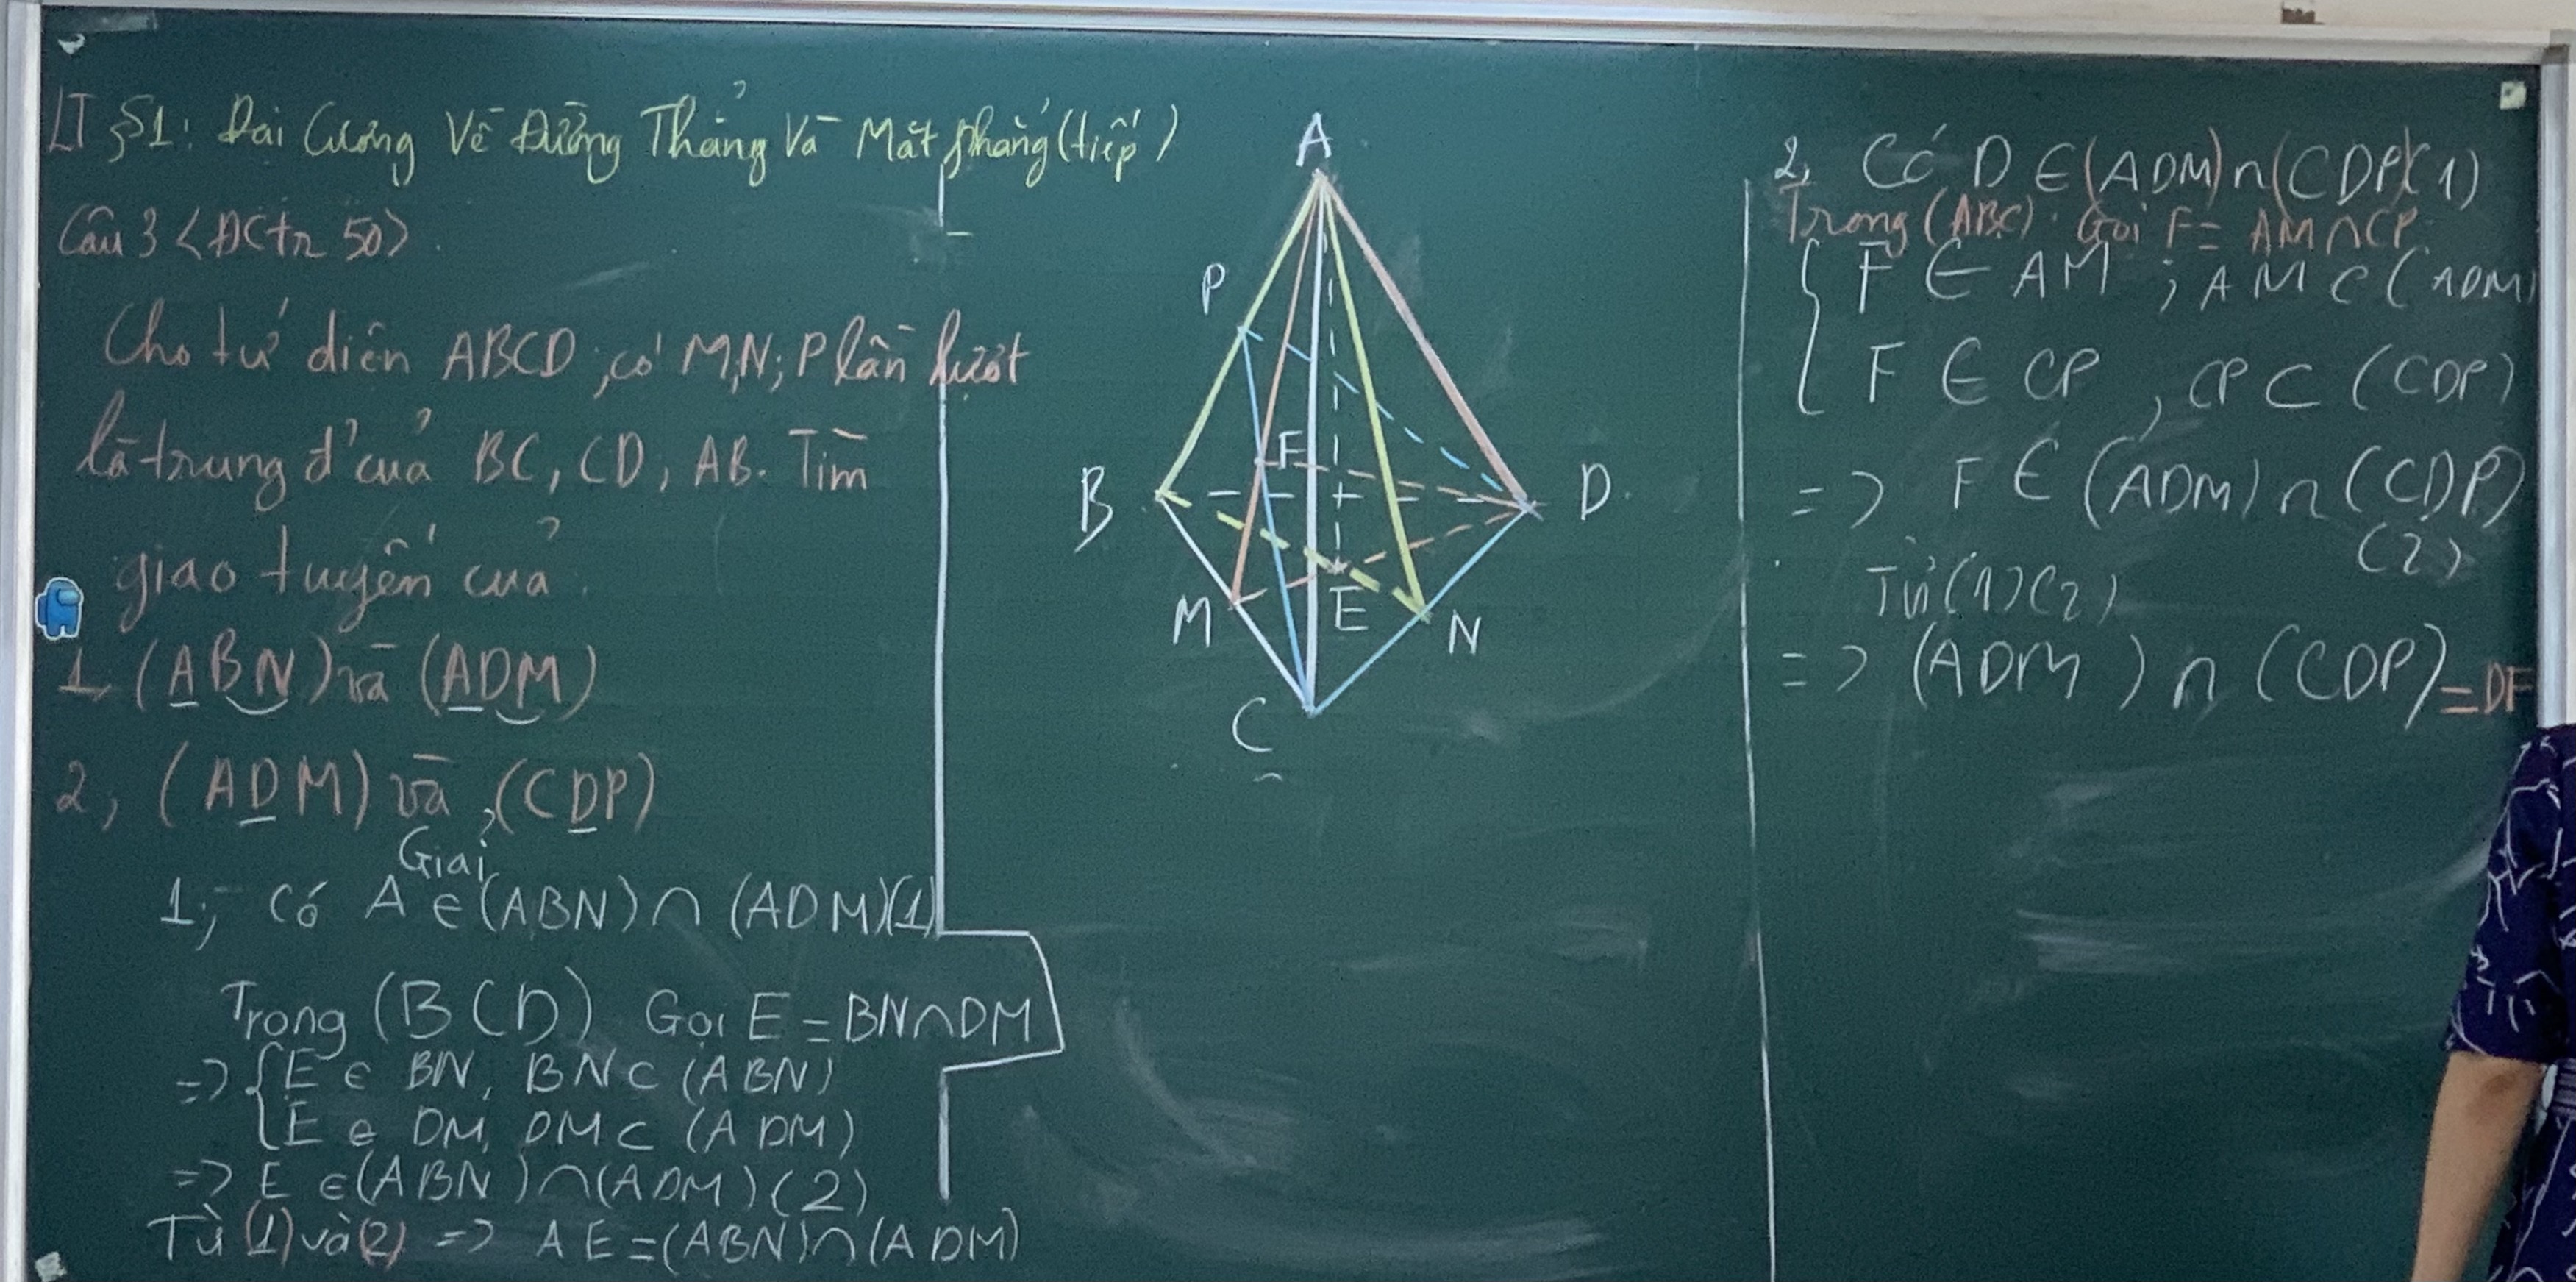 LT §1: Đại Cương Về Đường Thẳng Và Mặt phẳng (tiếp)
Câu 3 <ĐCtr 50>
Cho tứ diện ABCD, có M,N; P lần lượt
là trung đ' của BC, CD, AB. Tìm
giao tuyến của
1, (ABN) và (ADM)
2, (ADM) và (CDP)
Giải
1, Có A ∈ (ABN) ∩ (ADM)(1)
Trong (BCD) Gọi E = BN∩DM
=> { E ∈ BN, BN ⊂ (ABN)
E ∈ DM, DM ⊂ (ADM)
=> E ∈ (ABN) ∩ (ADM) (2)
Từ (1) và (2) => AE = (ABN) ∩ (ADM)
A
P
F
B
D
M
E
N
C
2, Có D ∈ (ADM) ∩ (CDP)(1)
Trong (ABC). Gọi F = AM∩CP
{ F ∈ AM ; AM ⊂ (ADM)
F ∈ CP, CP ⊂ (CDP)
=> F ∈ (ADM) ∩ (CDP)
(2)
Từ (1)(2)
=> (ADM) ∩ (CDP) = DF